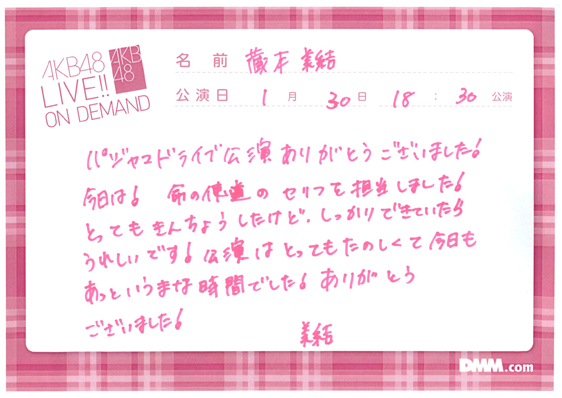 AKB48
LIVE!!
ON DEMAND
AKB
48
名前 蔵本美結
公演日 1月30日 18:30公演
パジャマドライブ公演ありがとうございました!
今日は!命の使道のセリフを担当しました!
とってもきんちょうしたけど、しっかりできていたら
うれしいです!公演はとってもたのしくて今日も
あっというまな時間でした!ありがとう
ございました!
美結
DMM.com